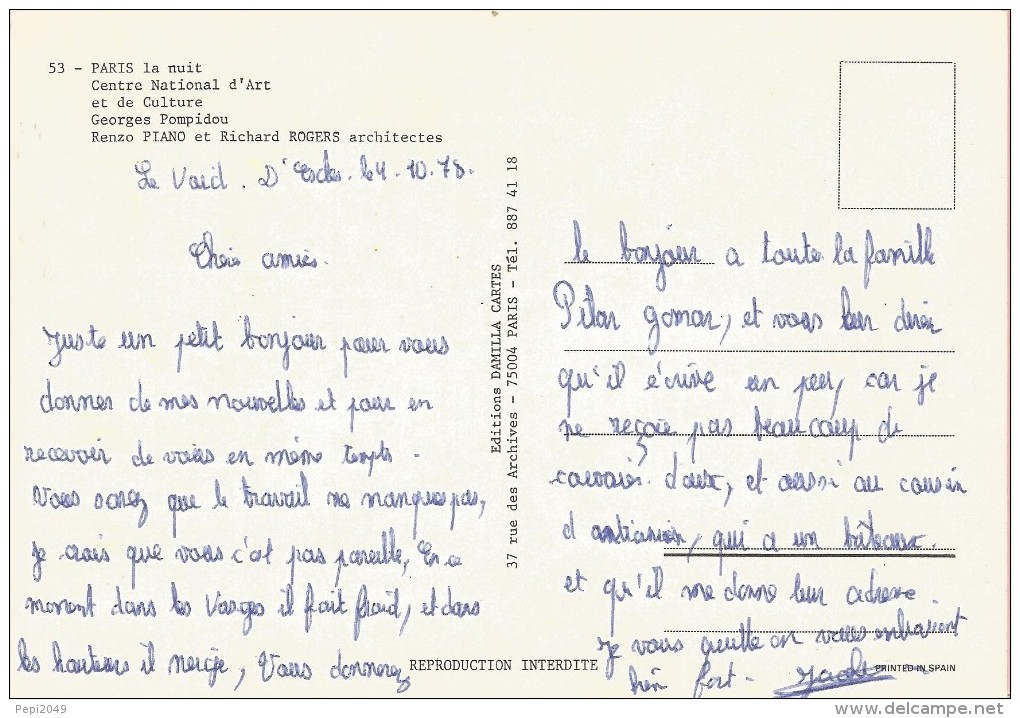 53 - PARIS la nuit
Centre National d'Art
et de Culture
Georges Pompidou
Renzo PIANO et Richard ROGERS architectes
Le Vaid. D'Escles. le 4.10.78.
Cheis amies.
Juste un petit bonjour pour vous
donner de mes nouvelles et pour en
recevoir de vous en même temps.
Vous savez que le travail ne manque pas,
je crois que vous c'et pas pareille, En ce
moment dans les Vosges il fait froid, et dans
les hauteurs il neige, Vous donnerez
Editions DAMILLA CARTES
37 rue des Archives - 75004 PARIS - Tél. 887 41 18
le bonjour a toute la famille
Pilar gomar, et vous leur direz
qu'il écrive un peu, car je
ne reçoie pas beaucoup de
d'eux, et aussi au cousin
d, qui a un bâteaux.
et qu'il me donne leur adresse.
Je vous quitte en vous embrassent
bien fort.
REPRODUCTION INTERDITE
PRINTED IN SPAIN
Pepi2049
delcampe.net